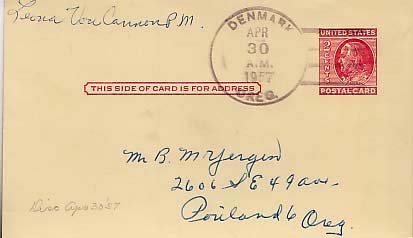 Leona Von Cannon P.M.
DENMARK
APR
30
A.M.
1957
OREG.
UNITED STATES
2 CENTS
POSTAL CARD
THIS SIDE OF CARD IS FOR ADDRESS
Mr B. M. Yergen
2606 S E 49 ave.
Portland 6 Oreg.
Disc Apr 30 '57